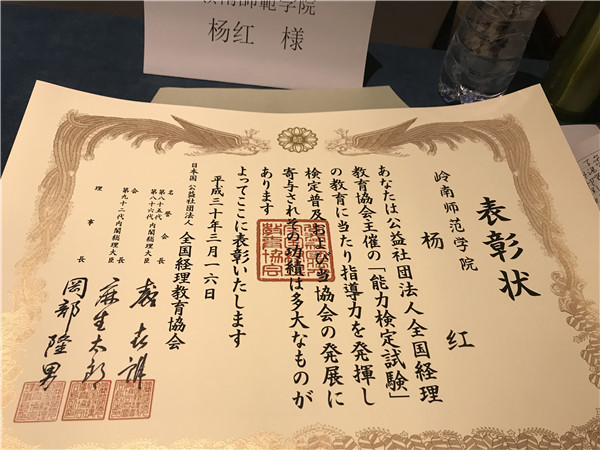 嶺南師範学院
杨红 様
表彰状
岭南师范学院
杨 红
あなたは公益社団法人全国経理
教育協会主催の「能力検定試験」
の教育に当たり指導力を発揮し
検定普及および当協会の発展に
寄与されその功績は多大なものが
あります
よってここに表彰いたします
平成三十年三月一六日
日本国 公益社団法人 全国経理教育協会
名誉会長
第八十五代
第八十六代 内閣総理大臣
森喜朗
会長
第九十二代内閣総理大臣
麻生太郎
理事長
岡部隆男